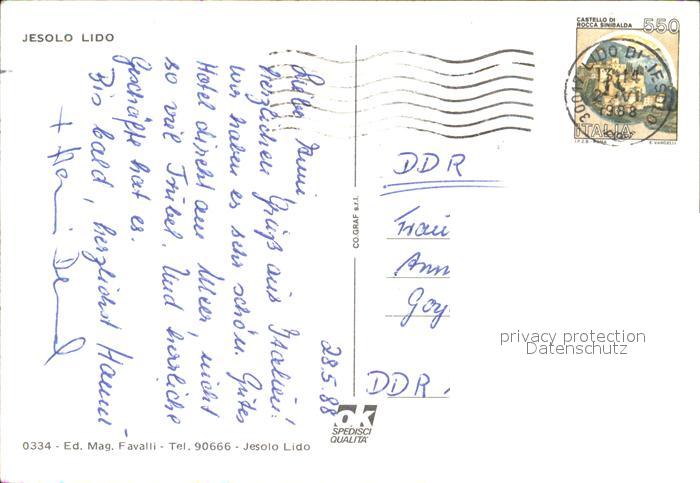 JESOLO LIDO
CASTELLO DI
ROCCA SINIBALDA
550
LIDO DI JESOLO
ITALIA
I.P.Z.S. - ROMA
E. VANGELLI
28.5.88
Liebe Anni
herzlichen Gruß aus Italien!
Wir haben es sehr schön. Gutes
Hotel direkt am Meer, nicht
so viel Trubel. Und herrliche
Geschäfte hat es.
Bis bald, herzlichst Hanni
+
DDR
Frau
Ann
Goy
DDR
CO.GRAF s.r.l.
privacy protection
Datenschutz
ok
SPEDISCI
QUALITÀ
0334 - Ed. Mag. Favalli - Tel. 90666 - Jesolo Lido